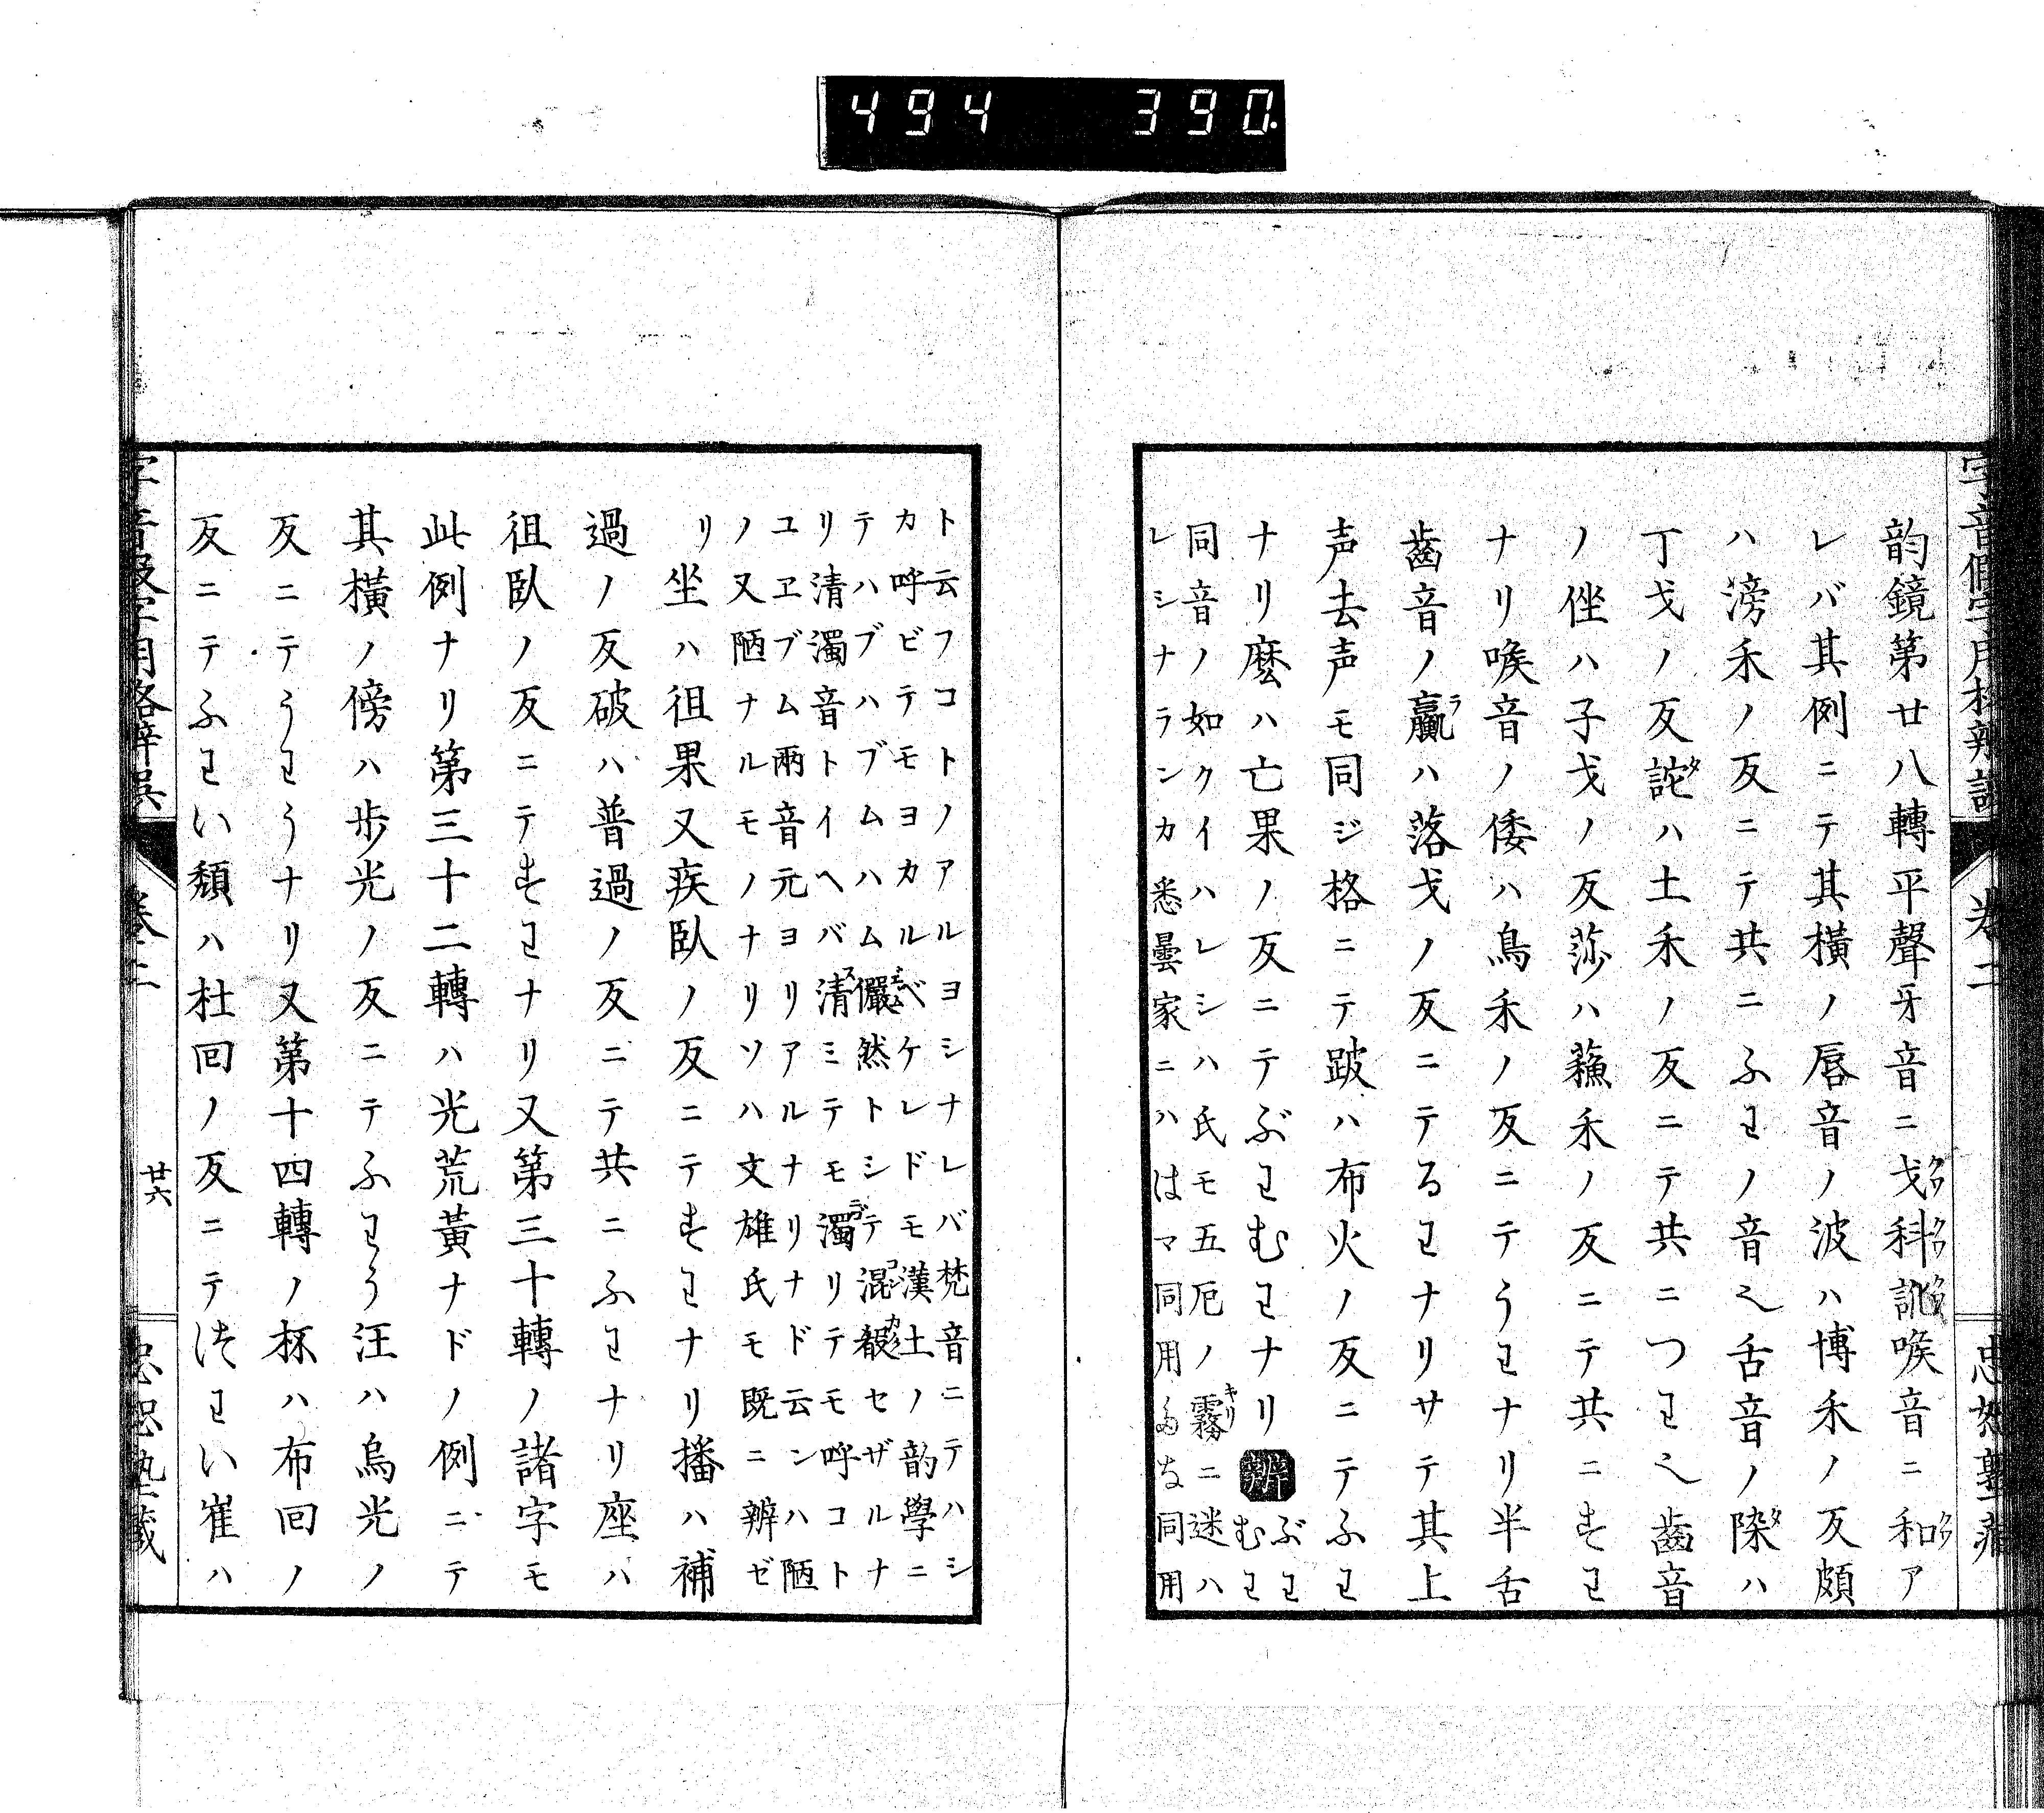 494 390.
韵鏡第廿八轉平聲牙音ニ戈科訛喉音ニ和ア
レバ其例ニテ其横ノ唇音ノ波ハ博禾ノ反頗
ハ滂禾ノ反ニテ共ニふわノ音也舌音ノ
丁戈ノ反詑ハ土禾ノ反ニテ共ニつわ也齒音
ノ侳ハ子戈ノ反莎ハ蘓禾ノ反ニテ共ニすわ
ナリ喉音ノ倭ハ烏禾ノ反ニテうわナリ半舌
齒音ノ臝ハ落戈ノ反ニテるわナリサテ其上
声去声モ同ジ格ニテ跛ハ布火ノ反ニテふわ
ナリ麽ハ亡果ノ反ニテぶわむわナリ辨ぶわむわ
同音ノ如クイハレシハ氏モ五厄ノ霧ニ迷ハ
レシナランカ悉曇家ニハはマ同用ぬな同用
字音假字用格辨誤 卷二 忠恕塾藏
トコトノアルヨシナレバ梵音ニテハシ
カ呼ビテモヨカルベケレドモ漢土ノ韵學ニ
テハブハブムハム儼然トシテ混殽セザルナ
リ清濁音トイヘバ清ミテモ濁リテモ呼コト
ユヱブム兩音元ヨリアルナリナド云ンハ陋
ノ又陋ナルモノナリソハ文雄氏モ既ニ辨ゼ
リ坐ハ徂果又疾臥ノ反ニテすわナリ播ハ補
過ノ反破ハ普過ノ反ニテ共ニふわナリ座ハ
徂臥ノ反ニテすわナリ又第三十轉ノ諸字モ
此例ナリ第三十二轉ハ光荒黄ナドノ例ニテ
其横ノ傍ハ歩光ノ反ニテふわう汪ハ烏光ノ
反ニテうわうナリ又第十四轉ノ杯ハ布回ノ
反ニテふわい頽ハ杜回ノ反ニテつわい崔ハ
字音假字用格辨誤 卷二 廿六 忠恕塾藏